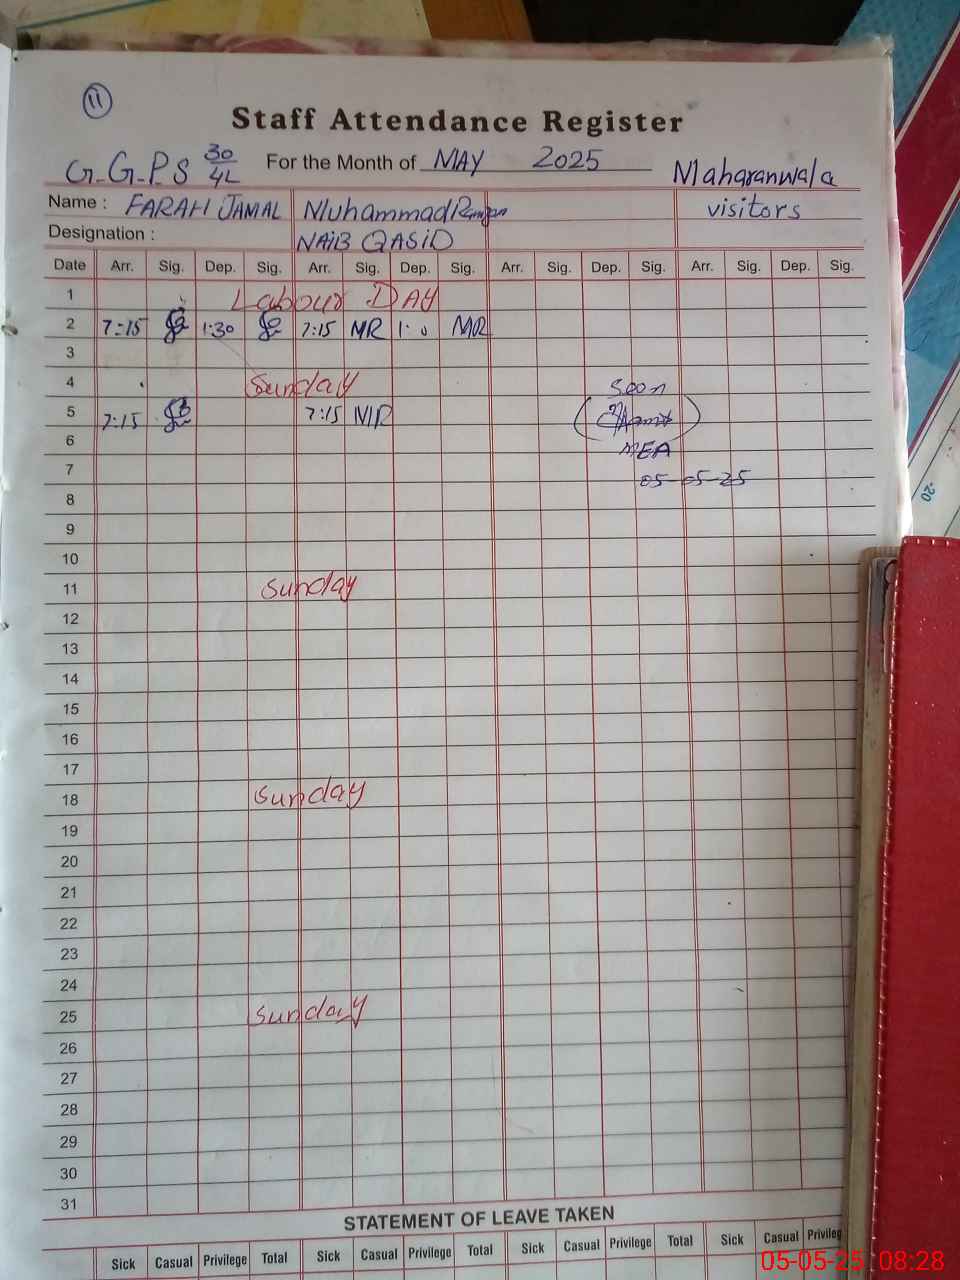 11
Staff Attendance Register
G.G.P.S 30/4L For the Month of MAY 2025 Maharanwala
Name : FARAH JAMAL Muhammad Ramzan visitors
Designation : NAIB QASID
Date Arr. Sig. Dep. Sig. Arr. Sig. Dep. Sig. Arr. Sig. Dep. Sig. Arr. Sig. Dep. Sig.
1 Labour DAY
2 7:15 1:30 7:15 MR MR
3
4 Sunday
Seen
5 7:15 7:15 MR
6 MEA
7 05-05-25
8
9
10
11 Sunday
12
13
14
15
16
17
18 Sunday
19
20
21
22
23
24
25 Sunday
26
27
28
29
30
31
STATEMENT OF LEAVE TAKEN
Sick Casual Privilege Total Sick Casual Privilege Total Sick Casual Privilege Total Sick Casual Privileg
05-05-25 08:28
-20